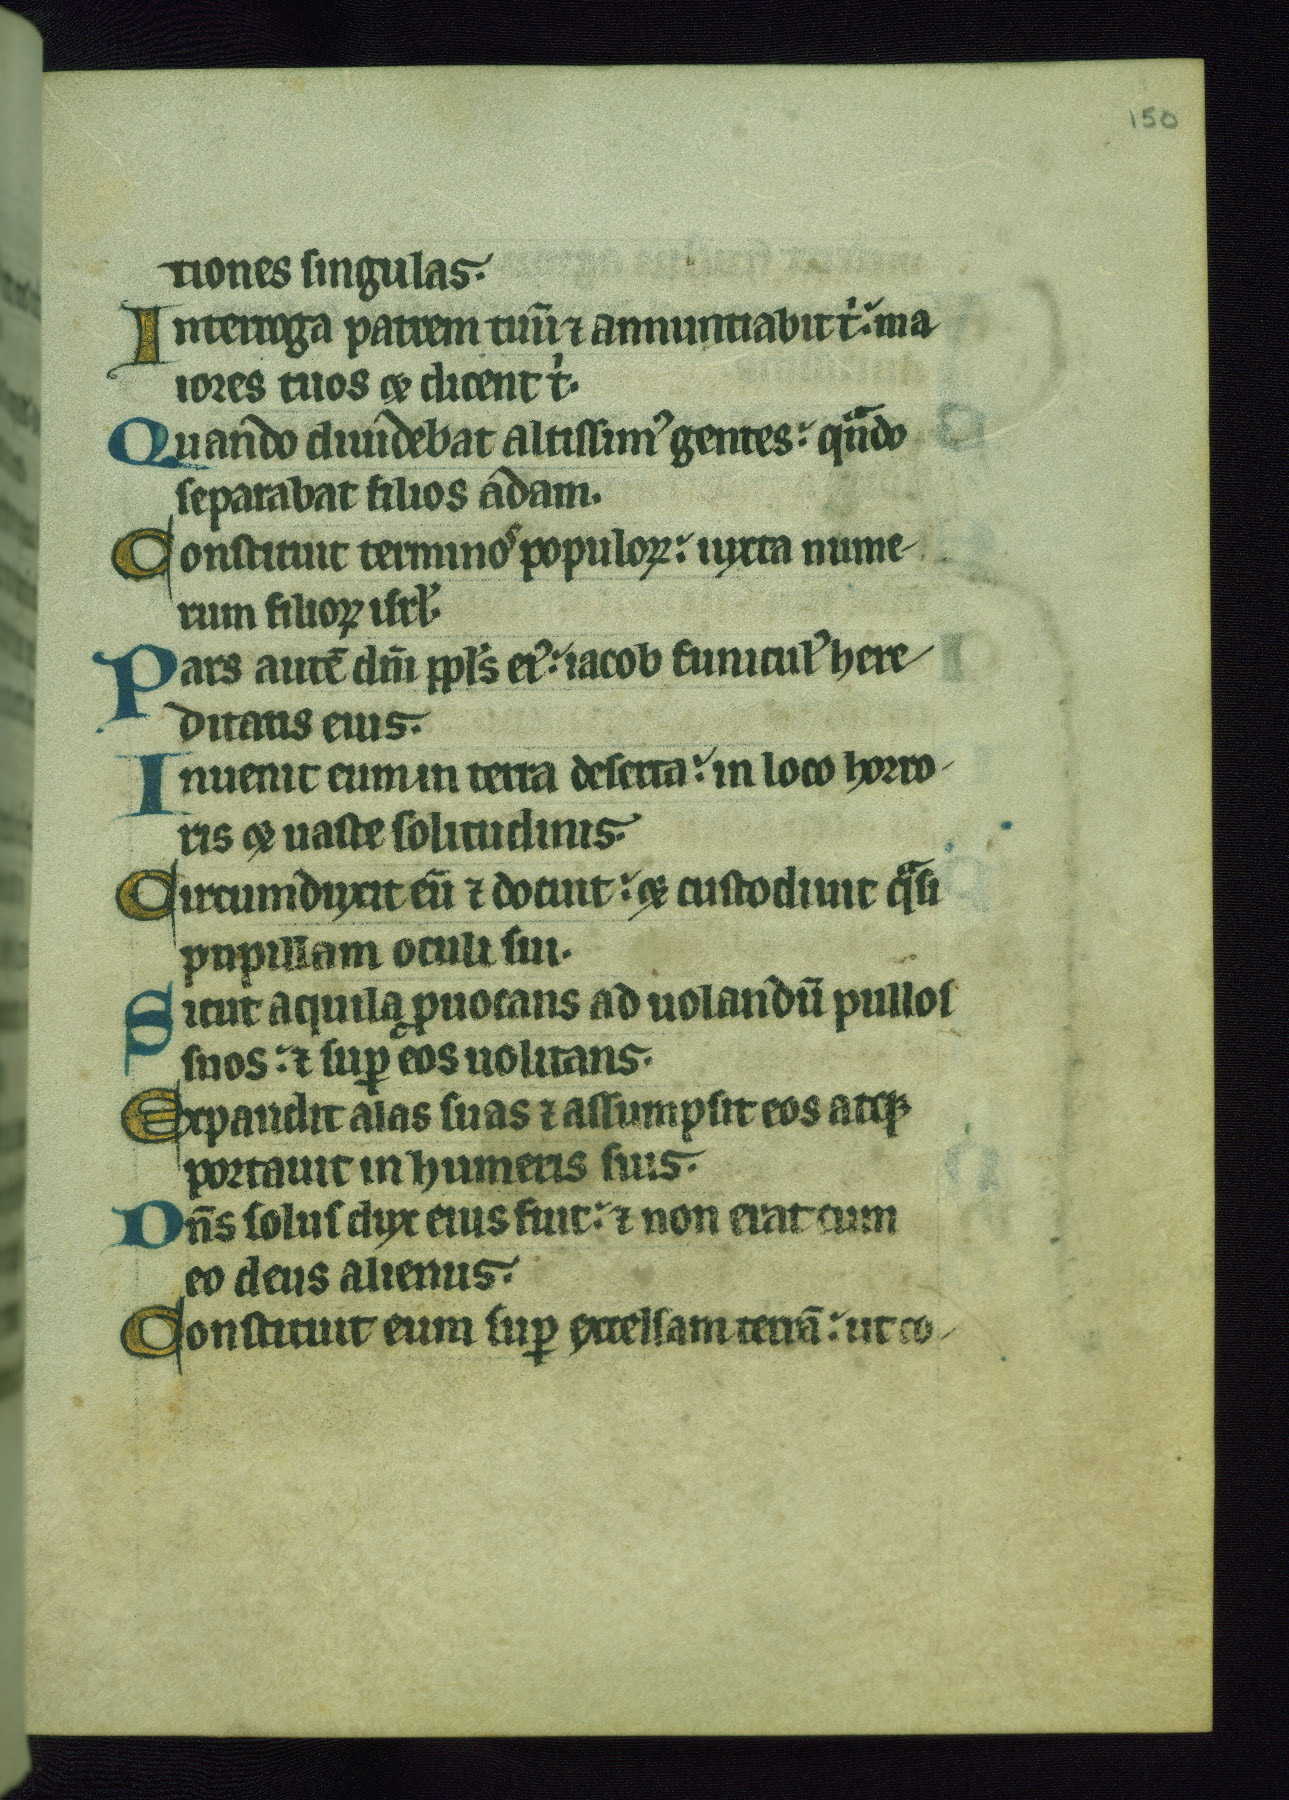 150
tiones singulas.
Interroga patrem tuū ⁊ annuntiabit t̾: ma
iores tuos & dicent t̾.
Quando diuidebat altissimꝰ gentes: qn̄do
separabat filios adam.
Constituit terminoˢ populoꝝ: iuxta nume-
rum filioꝝ isrl̾.
Pars autē dn̄i ppl̾s eiꝰ: iacob funiculꝰ here-
ditatis eius.
Inuenit eum in terra deserta: in loco horro-
ris & uaste solitudinis.
Circumduxit eū ⁊ docuit: & custodiuit qᵃsi
pupillam oculi sui.
Sicut aquila ꝓuocans ad uolandū pullos
suos: ⁊ suꝑ eos uolitans.
Expandit alas suas ⁊ assumpsit eos atqꝫ
portauit in humeris suis.
Dn̄s solus dux eius fuit: ⁊ non erat cum
eo deus alienus.
Constituit eum suꝑ excelsam terrā: ut co-